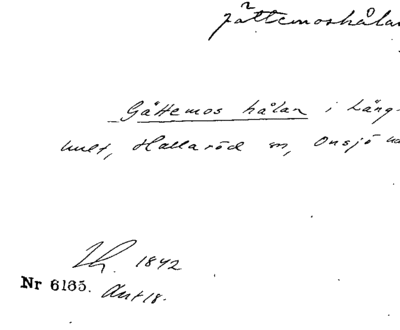 jättemoshålan
Gättemos hålan i Lång-
hult, Hallaröd sn, Onsjö
Th. 1842
Nr 6165. Ant 18.